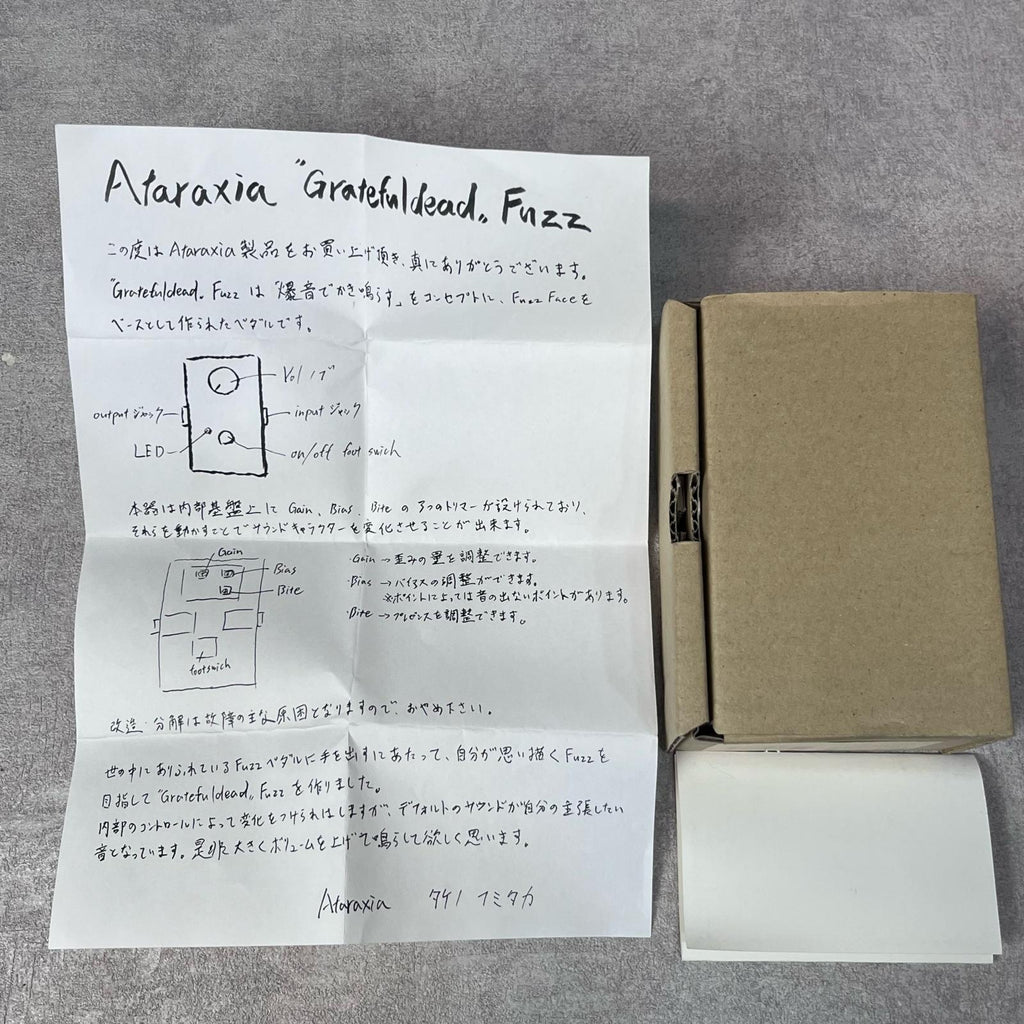 Ataraxia "Gratefuldead„ Fuzz
この度は Ataraxia 製品をお買い上げ頂き、真にありがとうございます。
"Gratefuldead„ Fuzz は「爆音でかき鳴らす」をコンセプトに、Fuzz Faceを
ベースとして作られたペダルです。
Vol ノブ
output ジャック
input ジャック
LED
on/off foot swich
本器は内部基盤上に Gain、Bias、Bite の3つのトリマーが設けられており、
それらを動かすことでサウンドキャラクターを変化させることが出来ます。
Gain
Bias
Bite
footswich
・Gain → 歪みの量を調整できます。
・Bias → バイアスの調整ができます。
※ポイントによっては音の出ないポイントがあります。
・Bite → プレゼンスを調整できます。
改造・分解は故障の主な原因となりますので、おやめ下さい。
世の中にありふれているFuzzペダルに手を出すにあたって、自分が思い描くFuzzを
目指して"Gratefuldead„ Fuzzを作りました。
内部のコントロールによって変化をつけられはしますが、デフォルトのサウンドが自分の主張したい
音となっています。是非大きくボリュームを上げて鳴らして欲しく思います。
Ataraxia タケノ フミタカ